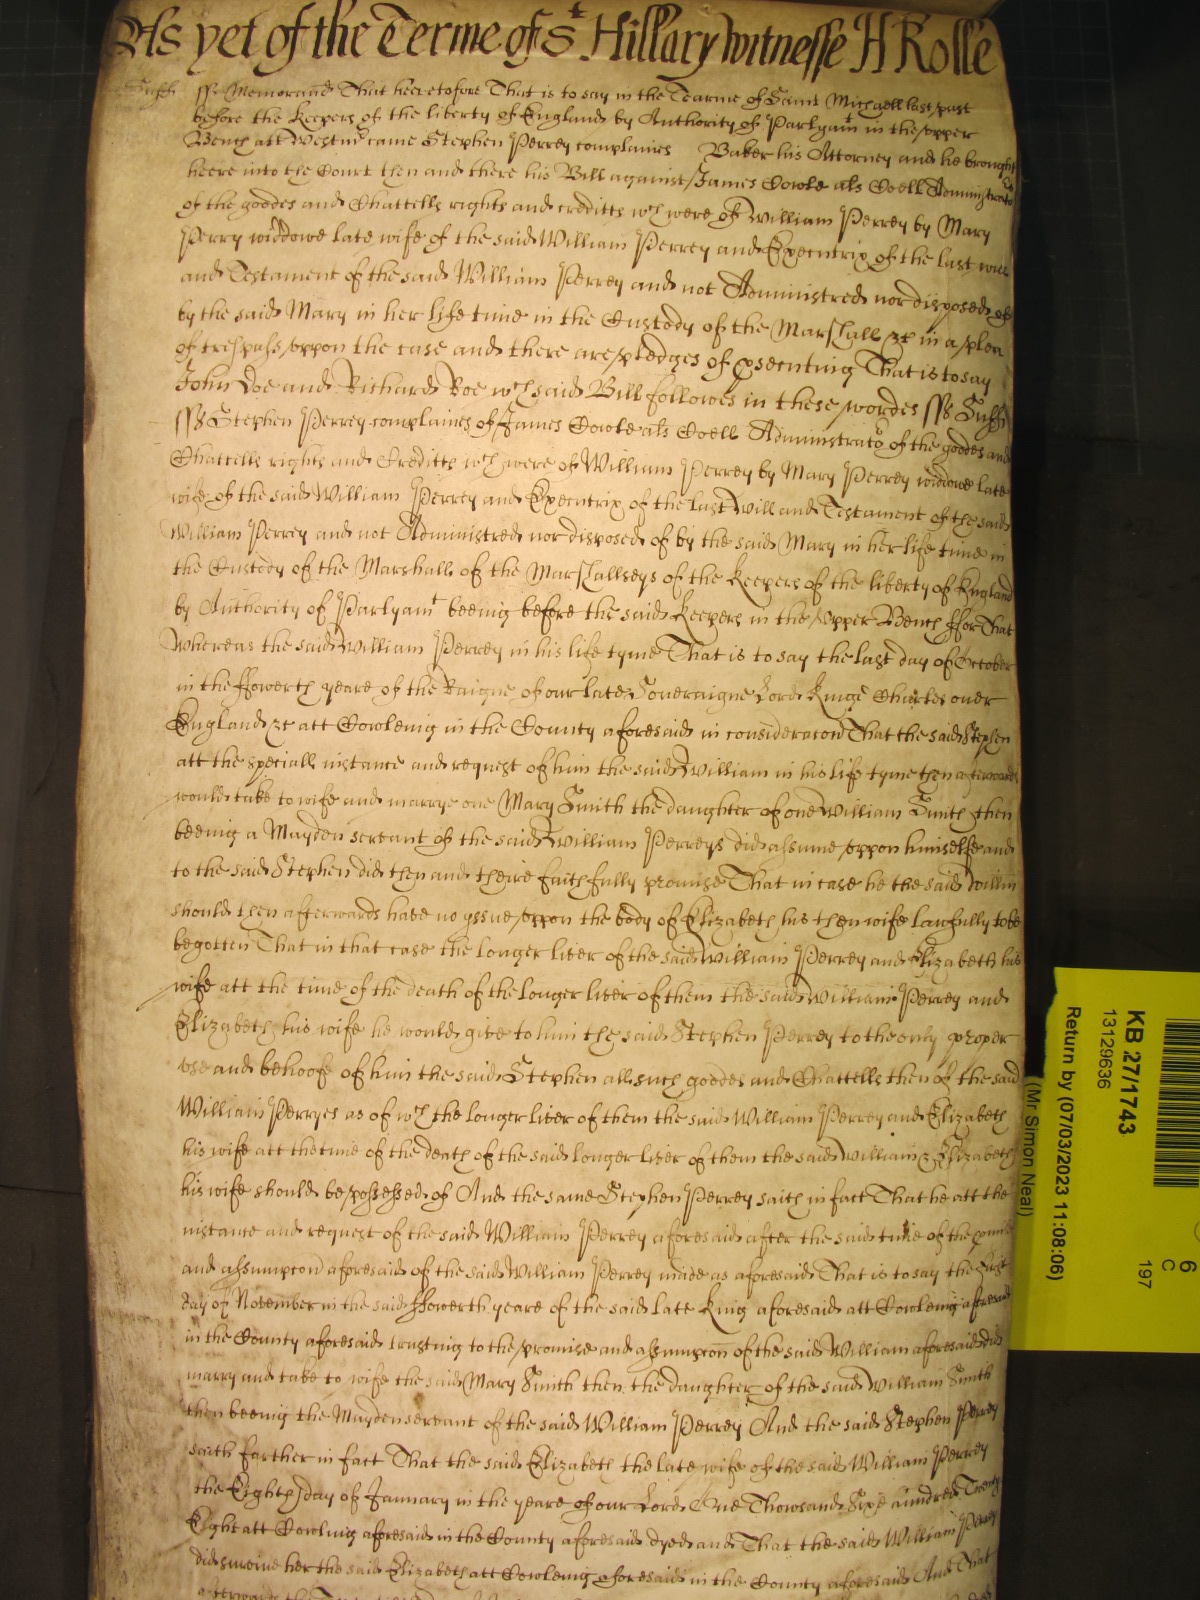 As yet of the Terme of St Hillary Witnesse H Rolle
Suff ss Memorand That heeretofore That is to say in the Tearme of Saint Michaell last past
before the Keepers of the liberty of England by Authority of Parlyamt in the upper
Bench att Westmr came Stephen Perrey complaines Baker his Attorney and he brought
heere into the Court then and there his Bill against James Cowle als Coell Administrator
of the goodes and Chattells rights and creditts wch were of William Perrey by Mary
Perry widdowe late wife of the said William Perrey and Executrix of the last will
and Testament of the said William Perrey and not Administred nor disposed of
by the said Mary in her life time in the Custody of the Marshall &c in a plea
of trespass uppon the case and there are pledges of prosecuting That is to say
John Doe and Richard Roe wch said Bill followes in these wordes ss Suff
ss Stephen Perrey complaines of James Cowle als Coell Administrator of the goodes and
Chattells rights and Creditts wch were of William Perrey by Mary Perrey widdowe late
wife of the said William Perrey and Executrix of the last Will and Testament of the said
William Perrey and not Administred nor disposed of by the said Mary in her life time in
the Custody of the Marshall of the Marshallseys of the Keepers of the liberty of England
by Authority of Parlyamt beeing before the said Keepers in the upper Bench ffor That
Whereas the said William Perrey in his life tyme That is to say the last day of October
in the ffowerth yeare of the Raigne of our late Soveraigne Lord Kinge Charles over
England &c att Cowleing in the County aforesaid in consideracon That the said Stephen
att the speciall instance and request of him the said William in his life tyme then afterwards
would take to wife and marrye one Mary Smith the daughter of one William Smith then
beeing a Mayden servant of the said William Perreys did assume uppon himselfe and
to the said Stephen did then and theire faithfully promise That in case he the said Willm
should then afterwards have no yssue uppon the body of Elizabeth his then wife lawfully to be
begotten That in that case the longer liver of the said William Perrey and Elizabeth his
wife att the time of the death of the longer liver of them the said William Perrey and
Elizabeth his wife he would give to him the said Stephen Perrey to the only proper
use and behoofe of him the said Stephen all such goodes and Chattells then of the said
William Perryes as of wch the longer liver of them the said William Perrey and Elizabeth
his wife att the time of the death of the said longer liver of them the said William & Elizabeth
his wife should be possessed of And the same Stephen Perrey saith in fact That he att the
instance and request of the said William Perrey aforesaid after the said time of the
and assumpcon aforesaid of the said William Perrey made as aforesaid That is to say the first
day of November in the said ffowerth yeare of the said late King aforesaid att Cowleing aforesaid
in the County aforesaid trusting to the promise and assumpcon of the said William aforesaid did
marry and take to wife the said Mary Smith then the daughter of the said William Smith
then beeing the Mayden servant of the said William Perrey And the said Stephen Perrey
saith farther in fact That the said Elizabeth the late wife of the said William Perrey
the Eighth day of January in the yeare of our Lord One Thowsand Sixe hundred Twenty
Eight att Cowling aforesaid in the County aforesaid dyed and That the said William Perrey
did survive her the said Elizabeth att Cowleing aforesaid in the County aforesaid And That
KB 27/1743
13129636
Return by (07/03/2023 11:08:06)
(Mr Simon Neal)
6
C
197